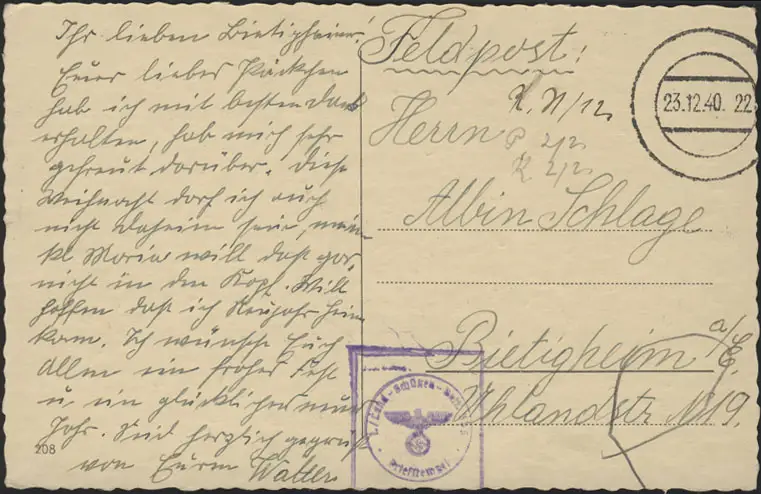 Ihr lieben Bietigheimer!
Euer liebes Päckchen
hab ich mit besten Dank
erhalten, hab mich sehr
gefreut darüber. Diese
Weihnacht darf ich auch
nicht daheim sein,
Maria will daß gar
nicht in den Kopf. Will
hoffen daß ich Neujahr heim
kam. Ich wünsche Euch
Allen ein frohes Fest
u. ein glückliches neues
Jahr. Seid herzlich gegrüßt
von Eurem Walter
208
Feldpost:
23.12.40. 22
Herrn
Albin Schlage
Bietigheim a/E.
Uhlandstr N19.
Briefstempel